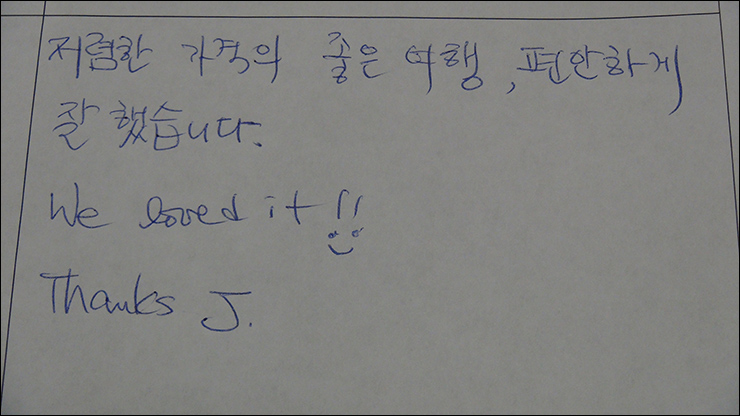 저렴한 가격의 좋은 여행, 편안하게
잘 했습니다.
We loved it!!
Thanks J.